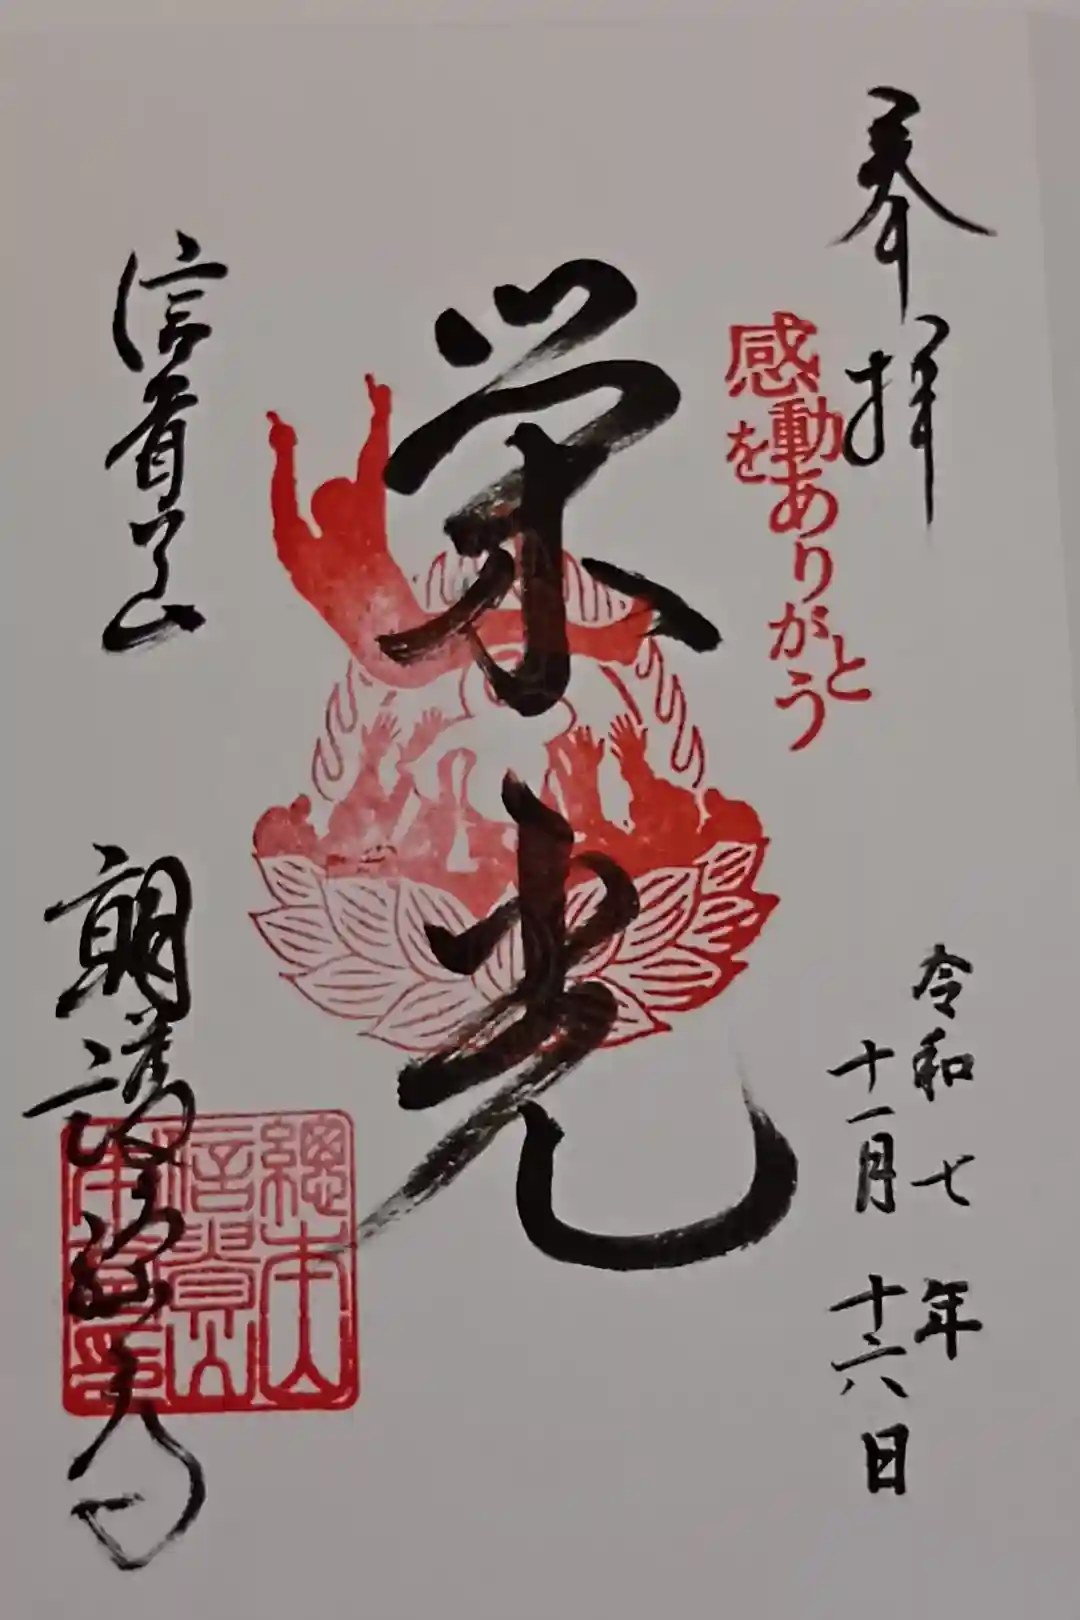 奉拝
感動を
ありがとう
栄光
令和七年
十一月十六日
信貴山
朝護孫子寺
總本山
信貴山